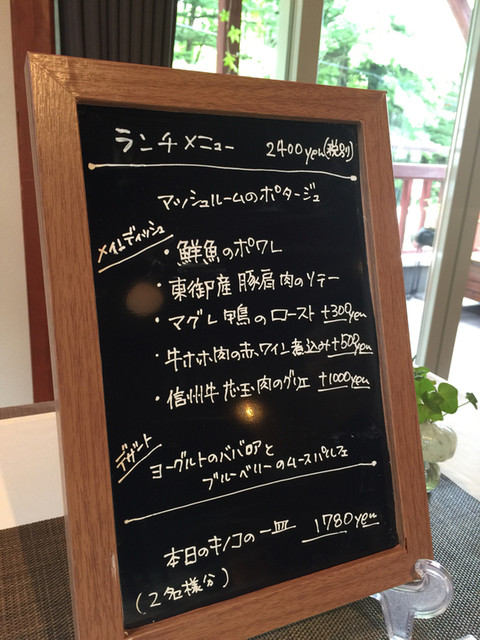 ランチメニュー 2400yen(税別)
マッシュルームのポタージュ
メインディッシュ
・鮮魚のポワレ
・東御産豚肩肉のソテー
・マグレ鴨のロースト +300yen
・牛ホホ肉の赤ワイン煮込み+500yen
・信州牛芯玉肉のグリエ +1000yen
デザート
ヨーグルトのババロアと
ブルーベリーのムースパルフェ
本日のキノコの一皿 1780yen
(2名様分)